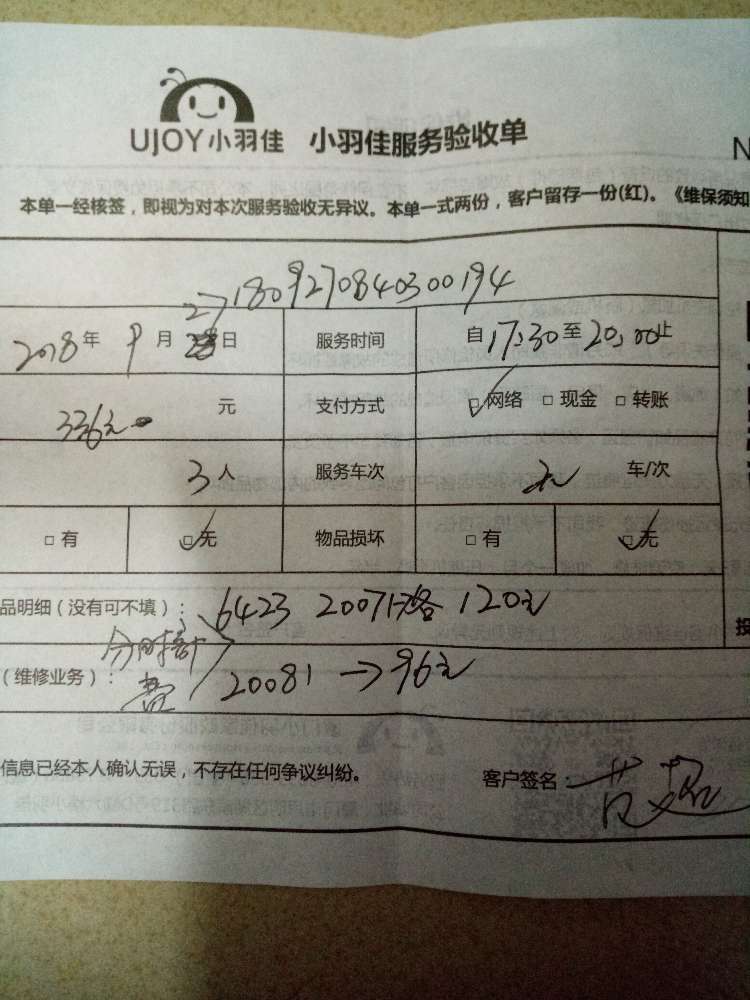 UJOY小羽佳 小羽佳服务验收单
N
本单一经核签，即视为对本次服务验收无异议。本单一式两份，客户留存一份(红)。《维保须知
1809270840300194
2018年 9月 27日 服务时间 自17:30至20:00止
336元 元 支付方式 网络 现金 转账
3人 服务车次 车/次
有 无 物品损坏 有 无
品明细（没有可不填）： 6423 20071 120元
分时
（维修业务）： 费 20081 → 96元
投
信息已经本人确认无误，不存在任何争议纠纷。 客户签名：